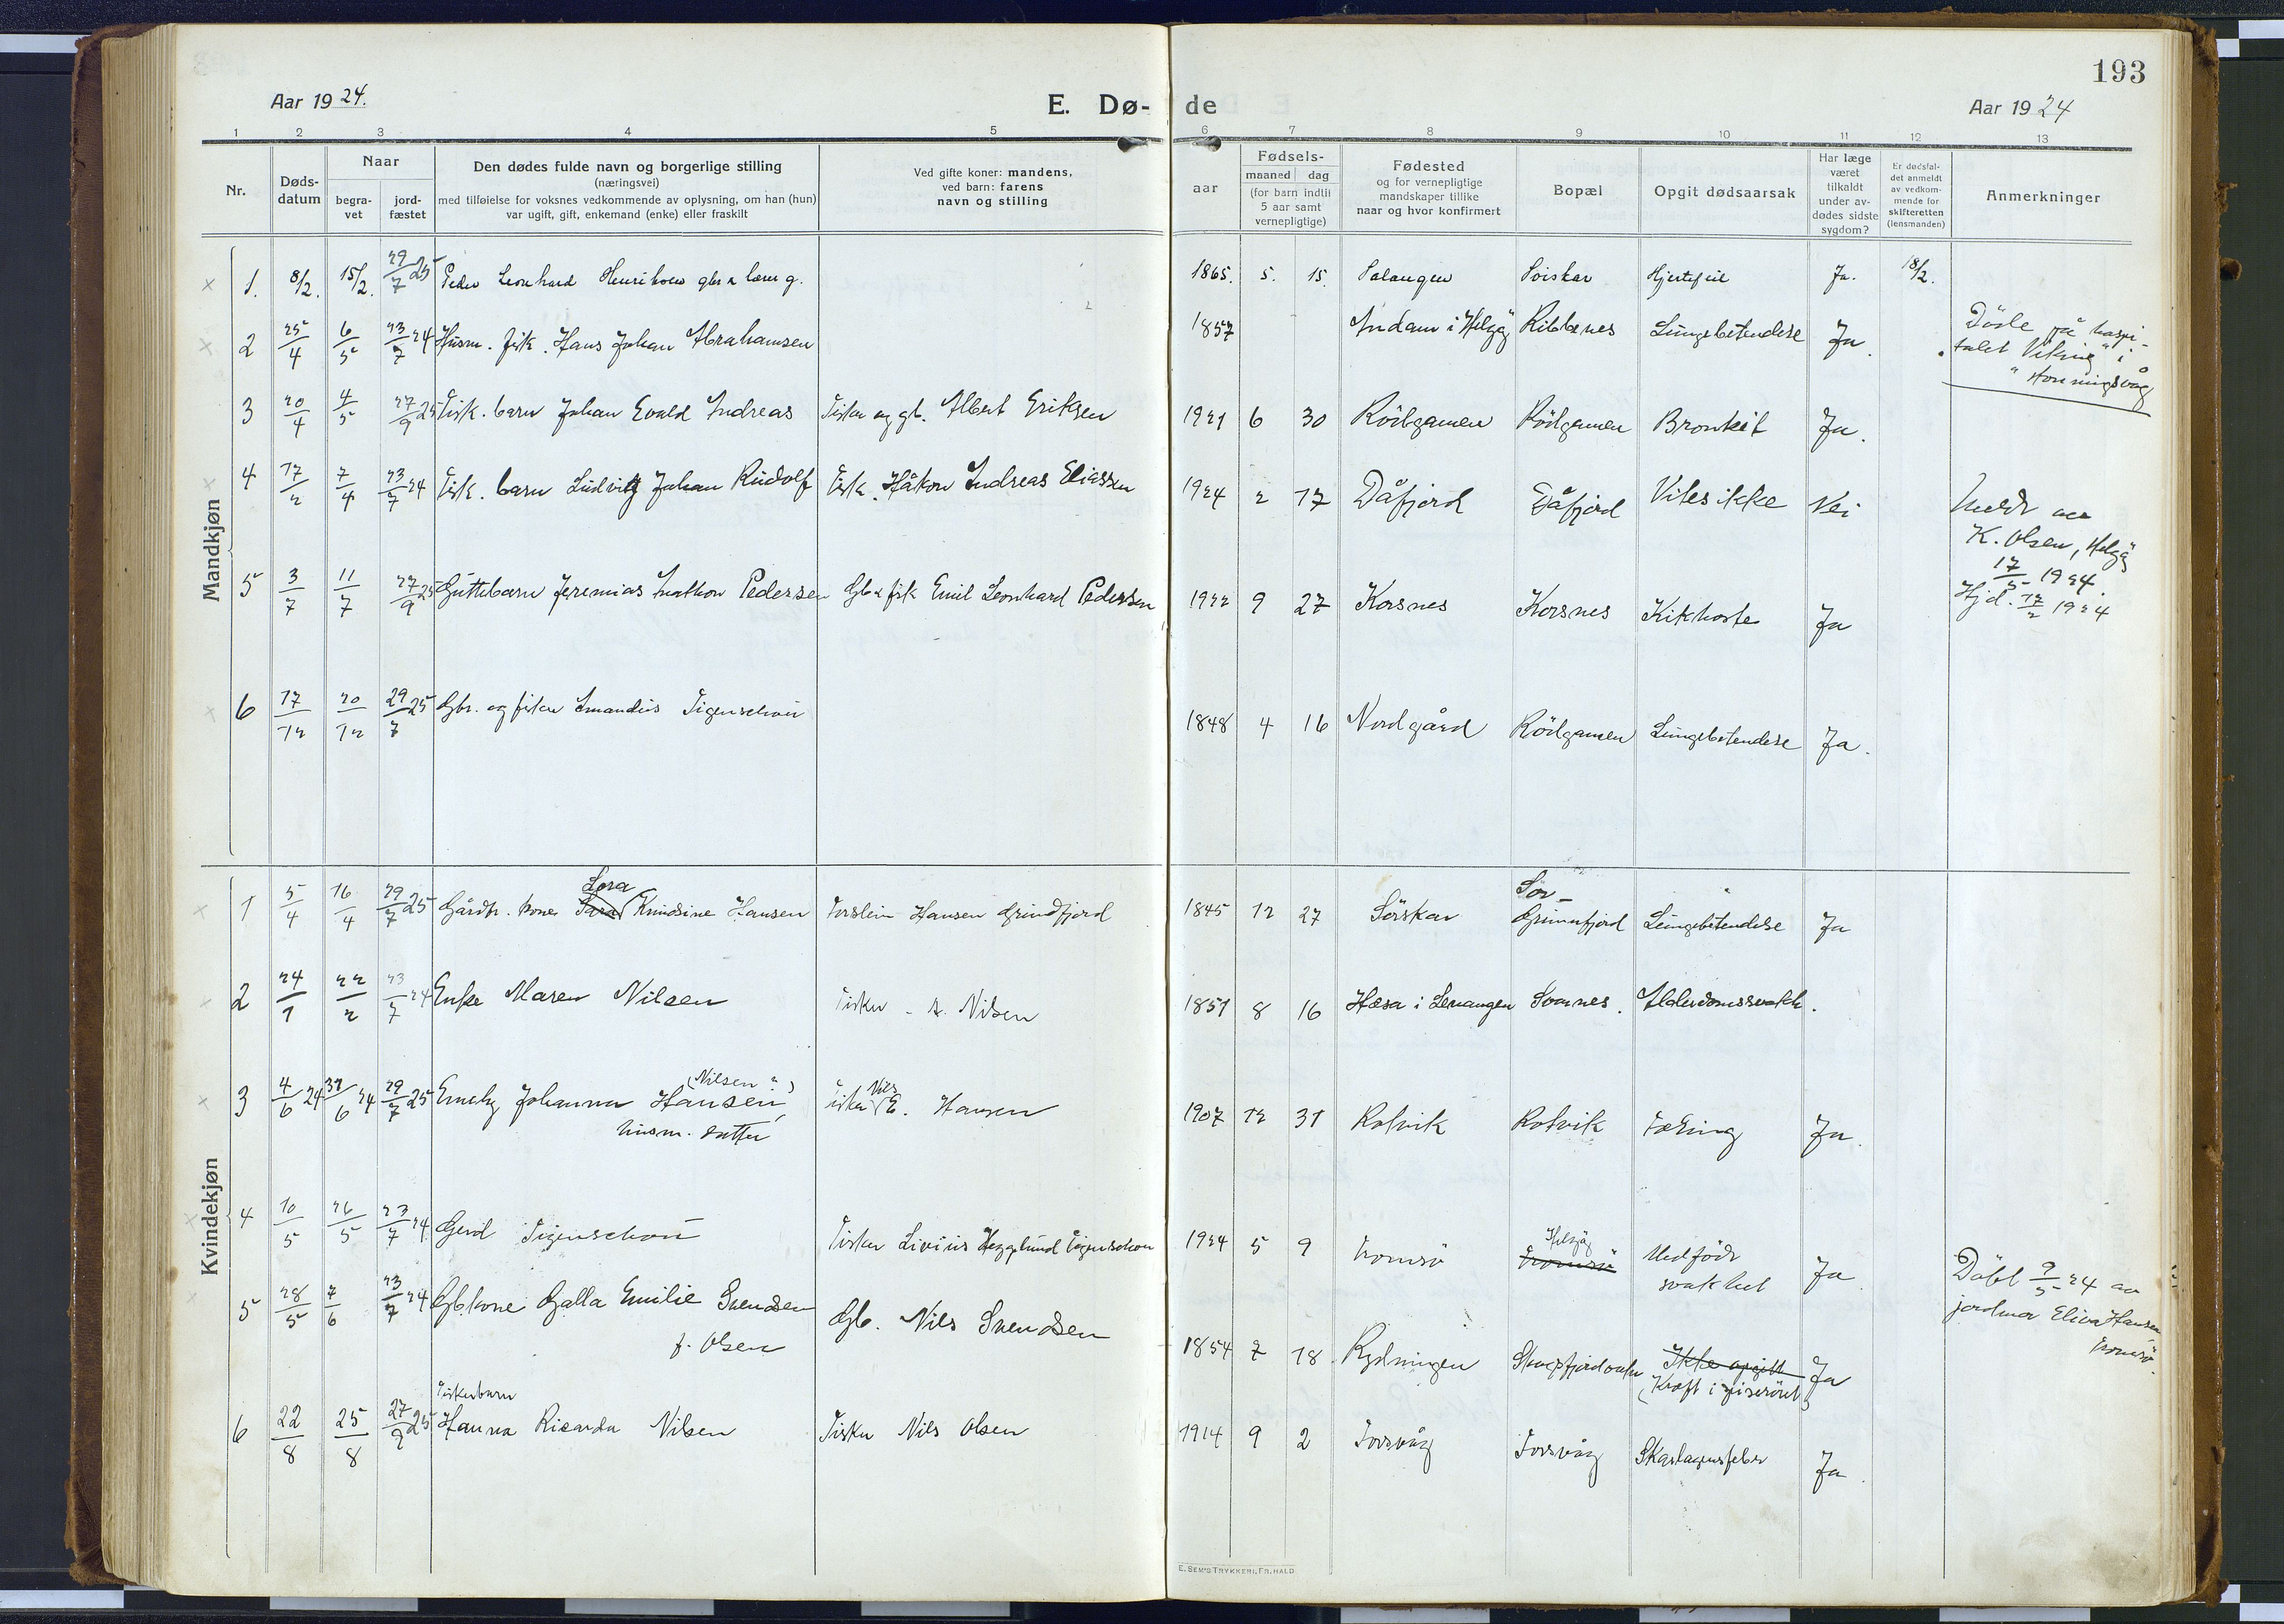 193
Aar 1924.
E. Dø-
de
Aar 1924
1 2 3 4 5 6 7 8 9 10 11 12 13
Nr.
Døds-
datum
Naar
begra-
vet
jord-
fæstet
Den dødes fulde navn og borgerlige stilling
(næringsvei)
med tilføielse for voksnes vedkommende av oplysning, om han (hun)
var ugift, gift, enkemand (enke) eller fraskilt
Ved gifte koner: mandens,
ved barn: farens
navn og stilling
aar
Fødsels-
maaned dag
(for barn indtil
5 aar samt
vernepligtige)
Fødested
og for vernepligtige
mandskaper tillike
naar og hvor konfirmert
Bopæl
Opgit dødsaarsak
Har læge
været
tilkaldt
under av-
dødes sidste
sygdom?
Er dødsfal-
det anmeldt
av vedkom-
mende for
skifteretten
(lensmanden)
Anmerkninger
Mandkjøn
1. 8/2. 15/2. 29/7 25 Peder Leonhard Henriksen g. 1865. 5. 15. Salangen Hjertefeil Ja. 18/2.
2 25/4 6/5 23/7 24 Husm. fisk. Hans Johan Abrahamsen 1857 Indam i Helgøy Ribbenes Lungebetendelse Ja.
Döde på hospi-
talet "Viking" i
Honningsvåg
3 20/4 4/5 27/9 25 Fisk. barn Johan Evald Andreas Fisker og gb. Albert Eriksen 1921 6 30 Rödgamen Rödgamen Bronkit Ja.
4 17/2 7/4 23/7 24 Fisk. barn Ludvig Johan Rudolf Fisk. Håkon Andreas Eliassen 1924 2 17 Dåfjord Dåfjord Vites ikke Nei
K. Olsen, Helgøy
17/5 1924.
Hjd. 17/2 1924
5 3/7 11/7 27/9 25 Guttebarn Jeremias Pedersen Gb & fisk Emil Leonhard Pedersen 1922 9 27 Korsnes Korsnes Kikhoste Ja
6 17/12 20/12 29/7 25 Gbr. og fisker Amandus Figenschou 1848 4 16 Nordgård Rödgamen Lungebetendelse Ja.
Kvindekjøn
Lora
Sör-
1 5/4 16/4 29/7 25 Gårdbr. kone Sara Knudsine Hansen Torstein Hansen Grundfjord 1845 12 27 Sörskar Grunnfjord Lungebetendelse Ja
2 24/1 22/2 23/7 24 Enke Maren Nilsen Fisker Nilsen 1851 8 16 Hæsa i Lenangen Alderdomssvakh.
(Nilsen?)
Nils
3 4/6 24 31/6 24 29/7 25 Johanna Hansen, Fisker E. Hansen 1907 12 31 Rotvik Rotvik Tæring Ja.
husm. datter
Helgøy
4 10/5 26/5 23/7 24 Gerd Figenschou Fisker Livius Hegglund Figenschou 1924 5 9 Tromsö Tromsö Medfödt
svakhet Ja
Döbt 9/5 24 av
jordmor Elisa Hansen
Tromsö.
5 28/5 7/6 23/7 24 Gbkone Galla Emilie Svendsen Gb. Nils Svendsen 1854 7 18 Rydningen Ikke opgitt Ja
f. Olsen
(Kræft i spiseröret)
Fiskerbarn
6 22/8 25/8 27/9 25 Hanna Ricarda Nilsen Fisker Nils Olsen 1914 9 2 Torsvåg Torsvåg Skarlagensfeber Ja.
E. SEM'S TRYKKERI, FR.HALD